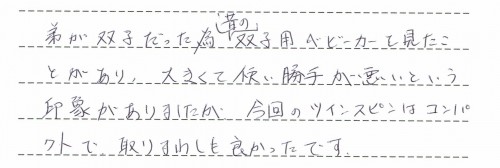 弟が双子だった為昔の双子用ベビーカーを見たこ
とがあり、大きくて使い勝手が悪いという
印象がありましたが、今回のツインスピンはコンパ
クトで、取りまわしも良かったです。